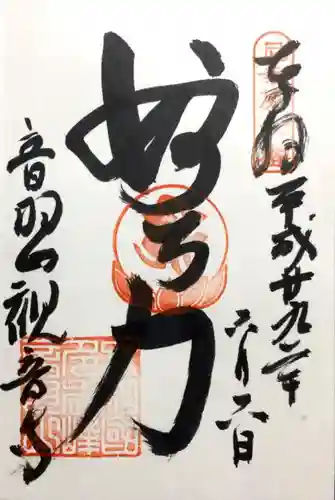 奉拝
平成廿九年
六月六日
妙智力
音羽山観音寺